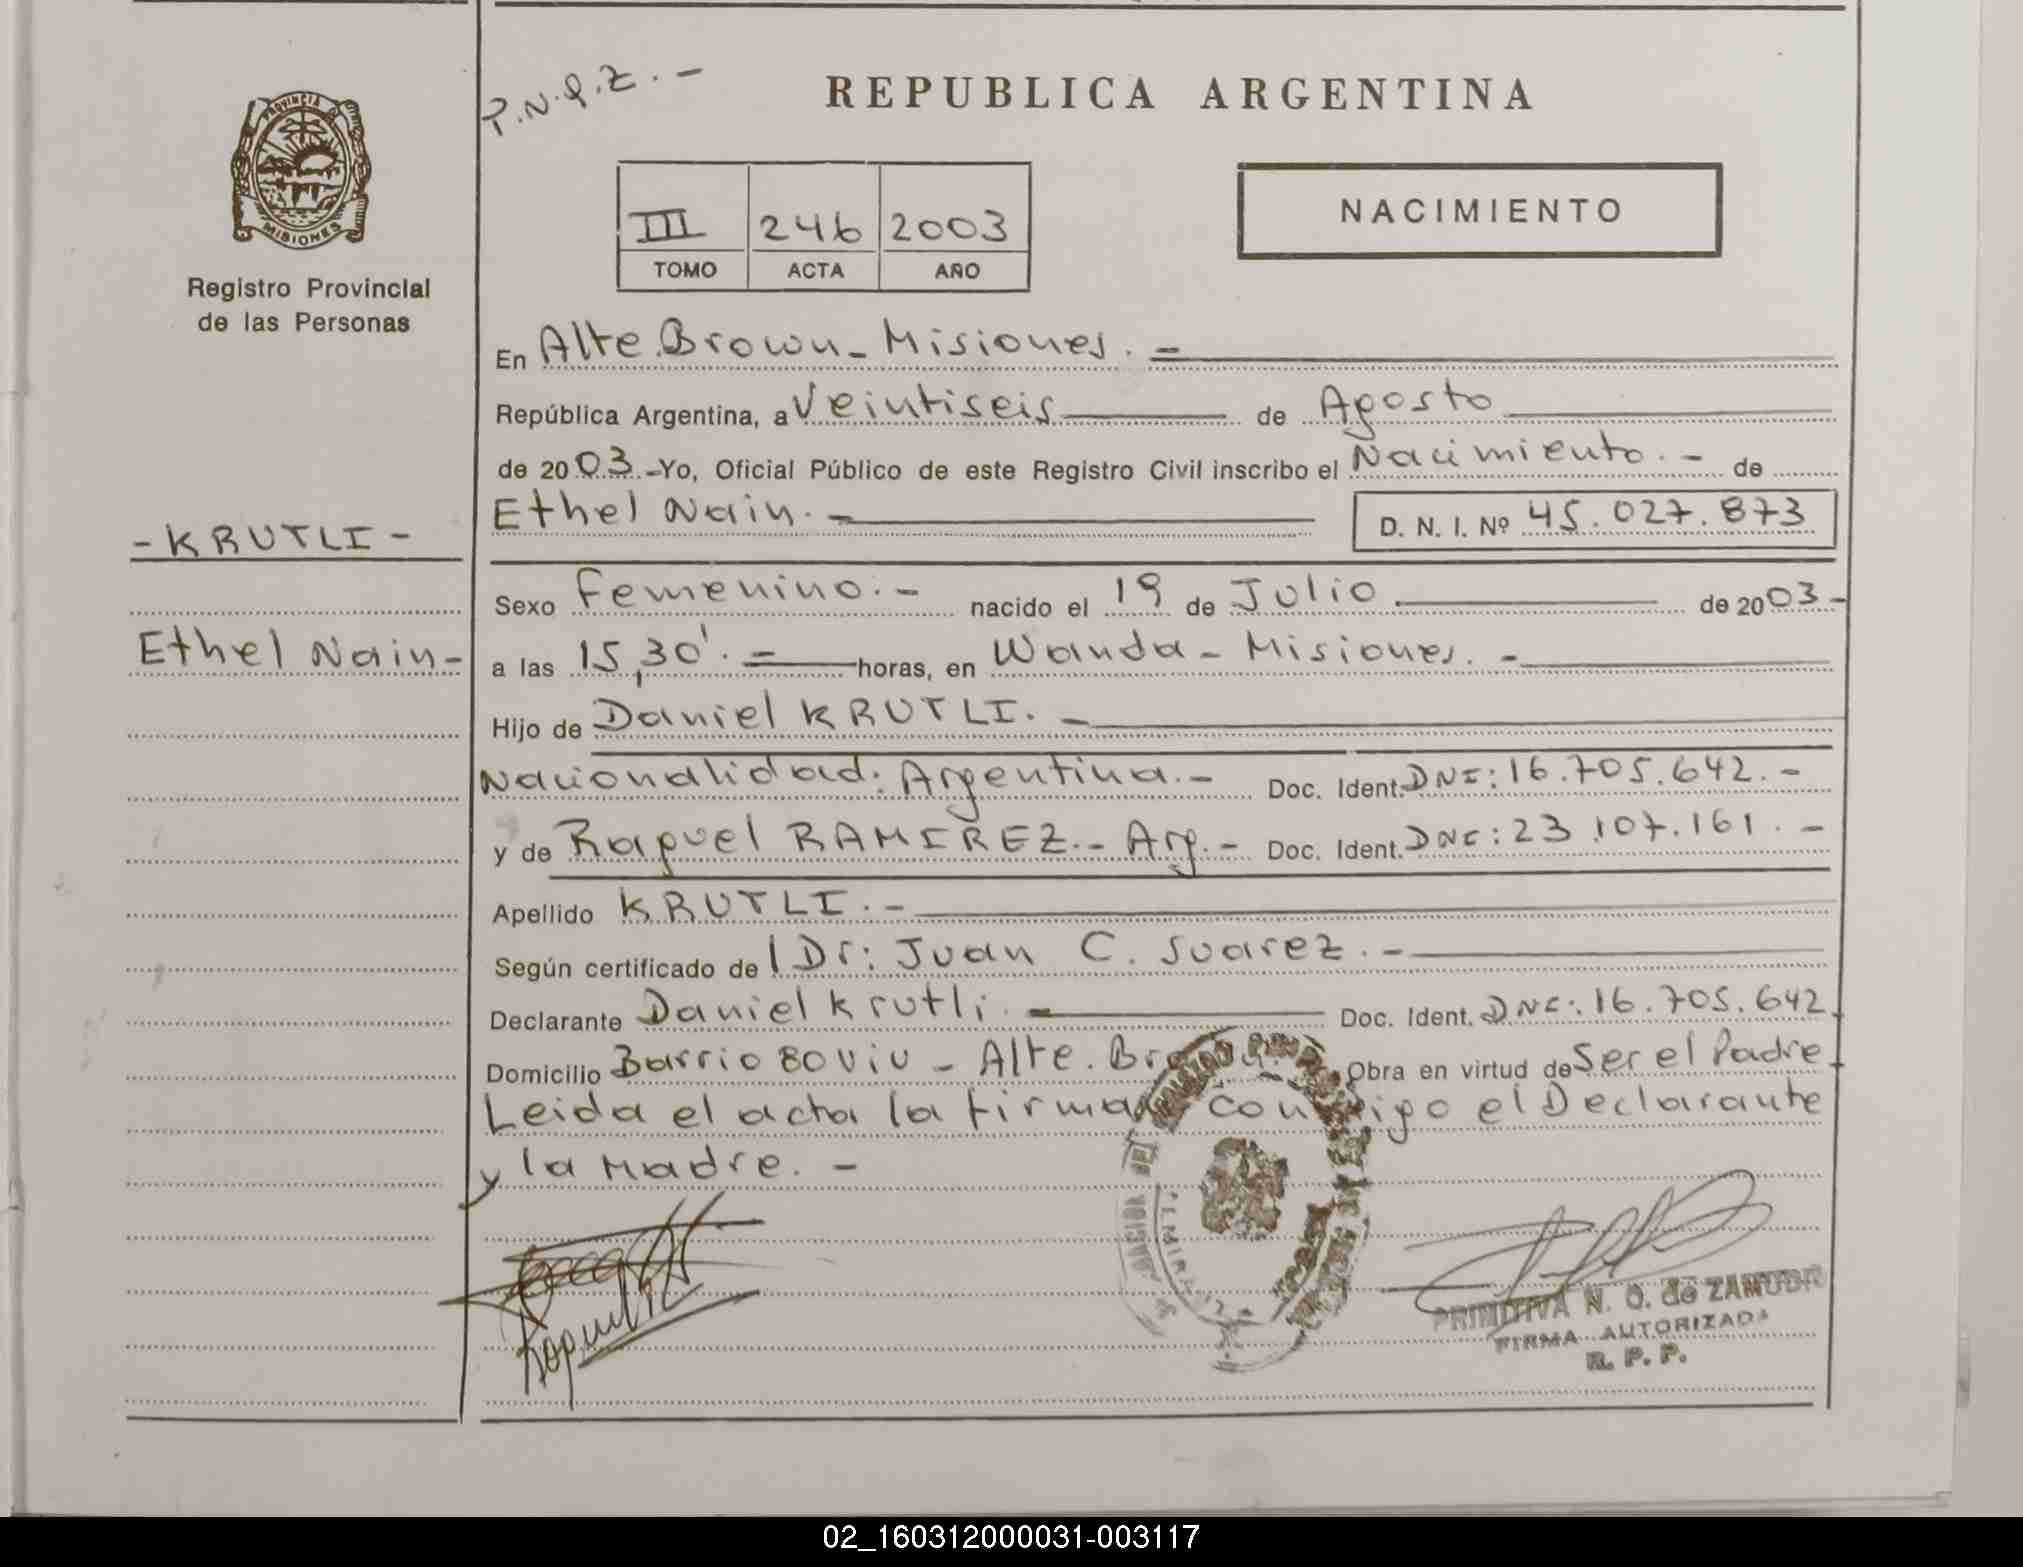 P.N.Q.Z.-
REPUBLICA ARGENTINA
PROVINCIA
MISIONES
Registro Provincial
de las Personas
III 246 2003
TOMO ACTA AÑO
NACIMIENTO
En Alte. Brown - Misiones. -
República Argentina, a Veintiseis de Agosto
de 2003.- Yo, Oficial Público de este Registro Civil inscribo el Nacimiento. - de
Ethel Nain. - D. N. I. Nº 45.027.873
- KRUTLI -
Sexo Femenino. - nacido el 19 de Julio de 2003 -
Ethel Nain -
a las 15,30'. = horas, en Wanda - Misiones. -
Hijo de Daniel KRUTLI. -
Nacionalidad: Argentina. - Doc. Ident. DNI: 16.705.642. -
y de Raquel RAMIREZ. - Arg. - Doc. Ident. DNI: 23.107.161. -
Apellido KRUTLI. -
Según certificado de l Dr: Juan C. Suarez. -
Declarante Daniel Krutli. - Doc. Ident. DNI: 16.705.642.
Domicilio Barrio BOVIU - Alte. Brown. Obra en virtud de Ser el Padre -
Leida el acta la firman conmigo el Declarante
y la Madre. -
PRIMITIVA N. O. de ZAMUDIO
FIRMA AUTORIZADA
R. P. P.
02_160312000031-003117